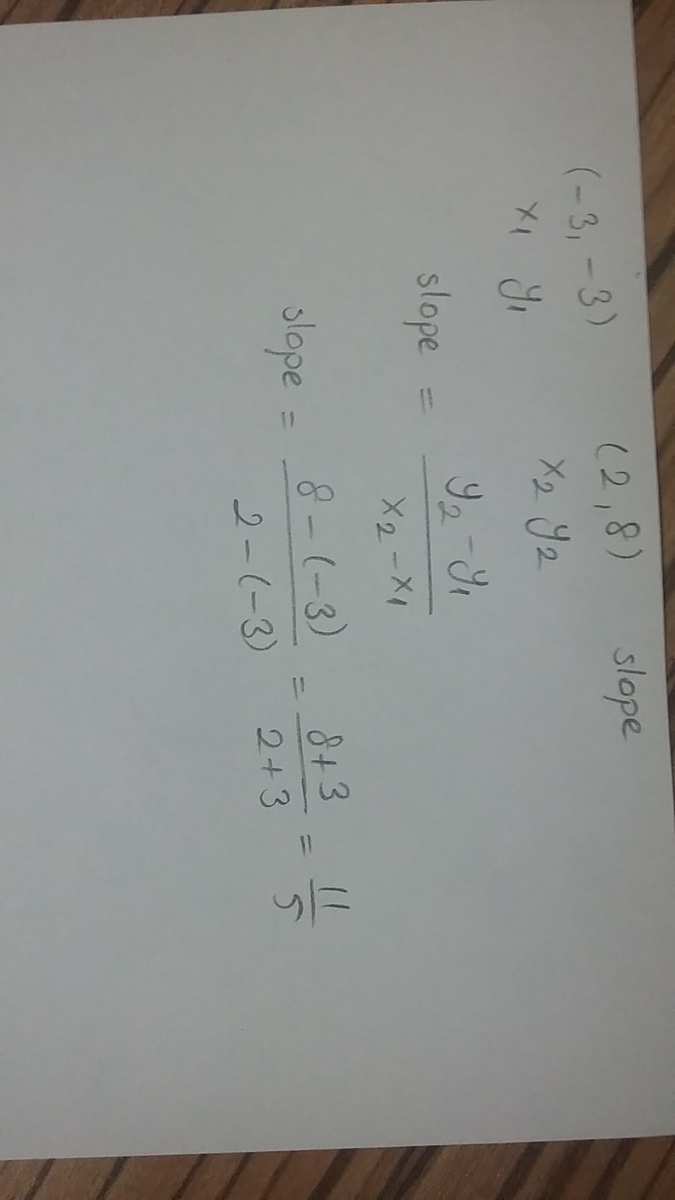 (-3, -3) (2, 8) slope
x₁ y₁ x₂ y₂
slope = y₂ - y₁ / x₂ - x₁
slope = 8 - (-3) / 2 - (-3) = 8 + 3 / 2 + 3 = 11 / 5